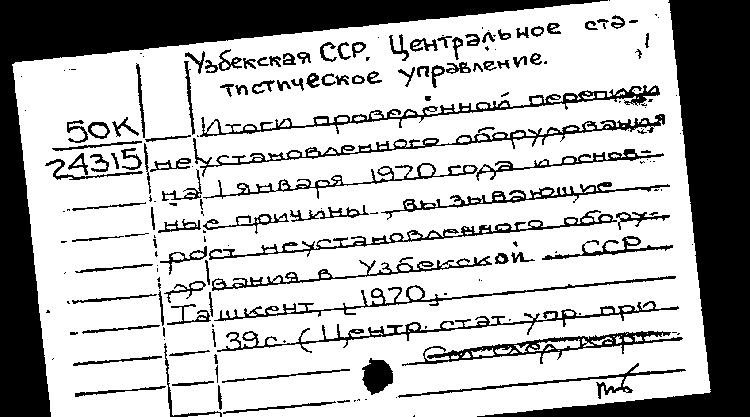 Узбекская ССР. Центральное ста-
тистическое управление.
50К
24315
Итоги проведённой переписи
неустановленного оборудования
на 1 января 1970 года и основ-
ные причины, вызывающие
рост неустановленного обору-
дования в Узбекской ССР.
Ташкент, [1970].
39с. (Центр. стат. упр. при
См. след. карт.